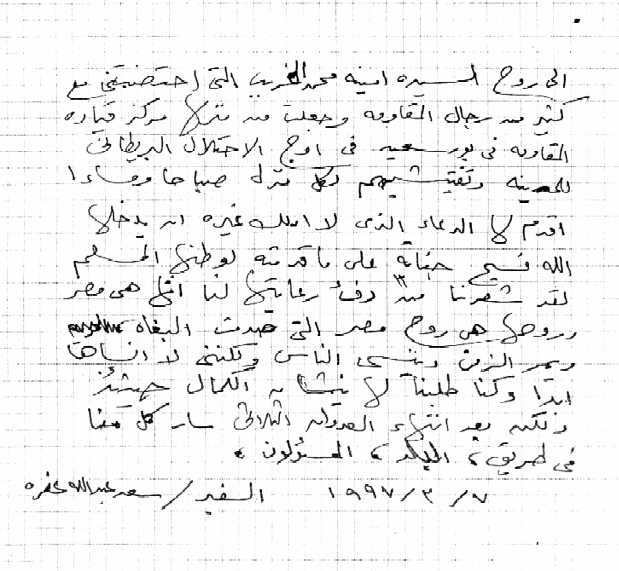 الى روح السيده امينه محمد الغريب التى احتضنتنى مع
كثير من رجال المقاومه وجعلت من منزلها مركز قياده
المقاومه فى بورسعيد فى اوج الاحتلال البريطانى
للمدينه وتفتيشهم لكل منزل صباحا ومساءا
اقدم لها الدعاء الذى لا املك غيره ان يدخلها
الله فسيح جناته على ما قدمته لوطنها المسلم
لقد شعرنا من دفء رعايتها لنا انها هى مصر
وروحها هى روح مصر التى صدت البغاه
ويمر الزمن وينسى الناس ولكننى لا انساها
ابدا وكنا طلبنا لها نيشان الكمال حينئذ
ولكن بعد انتهاء العدوان الثلاثى سار كل منا
فى طريق، البلد، المسئولون.
٧ / ٣ / ١٩٩٧ السفير / سعد عبدالله عفره